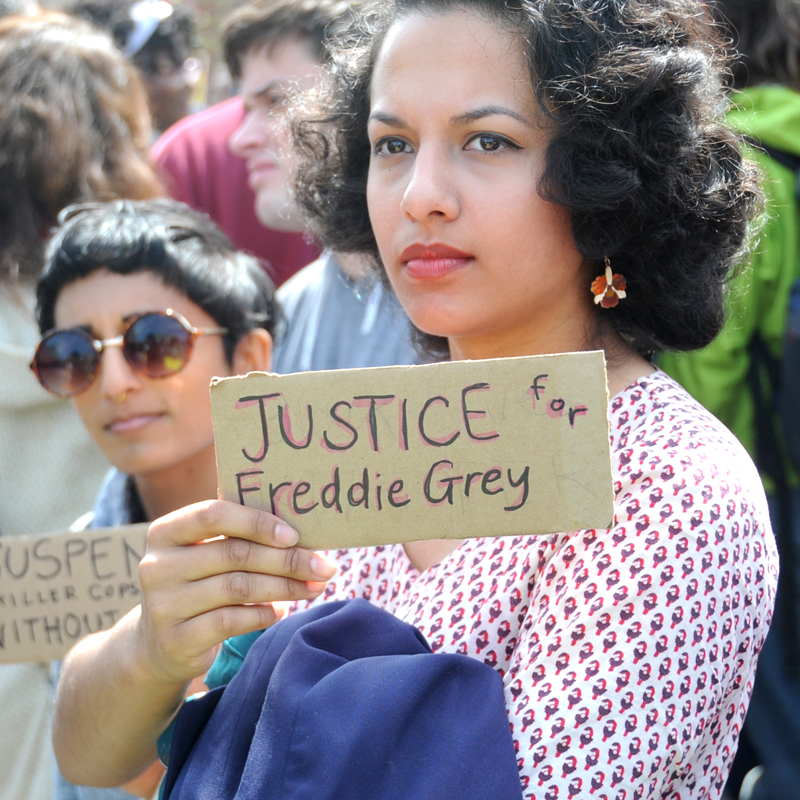 JUSTICE for
Freddie Grey
SUSPEN
KILLER COPS
WITHOUT